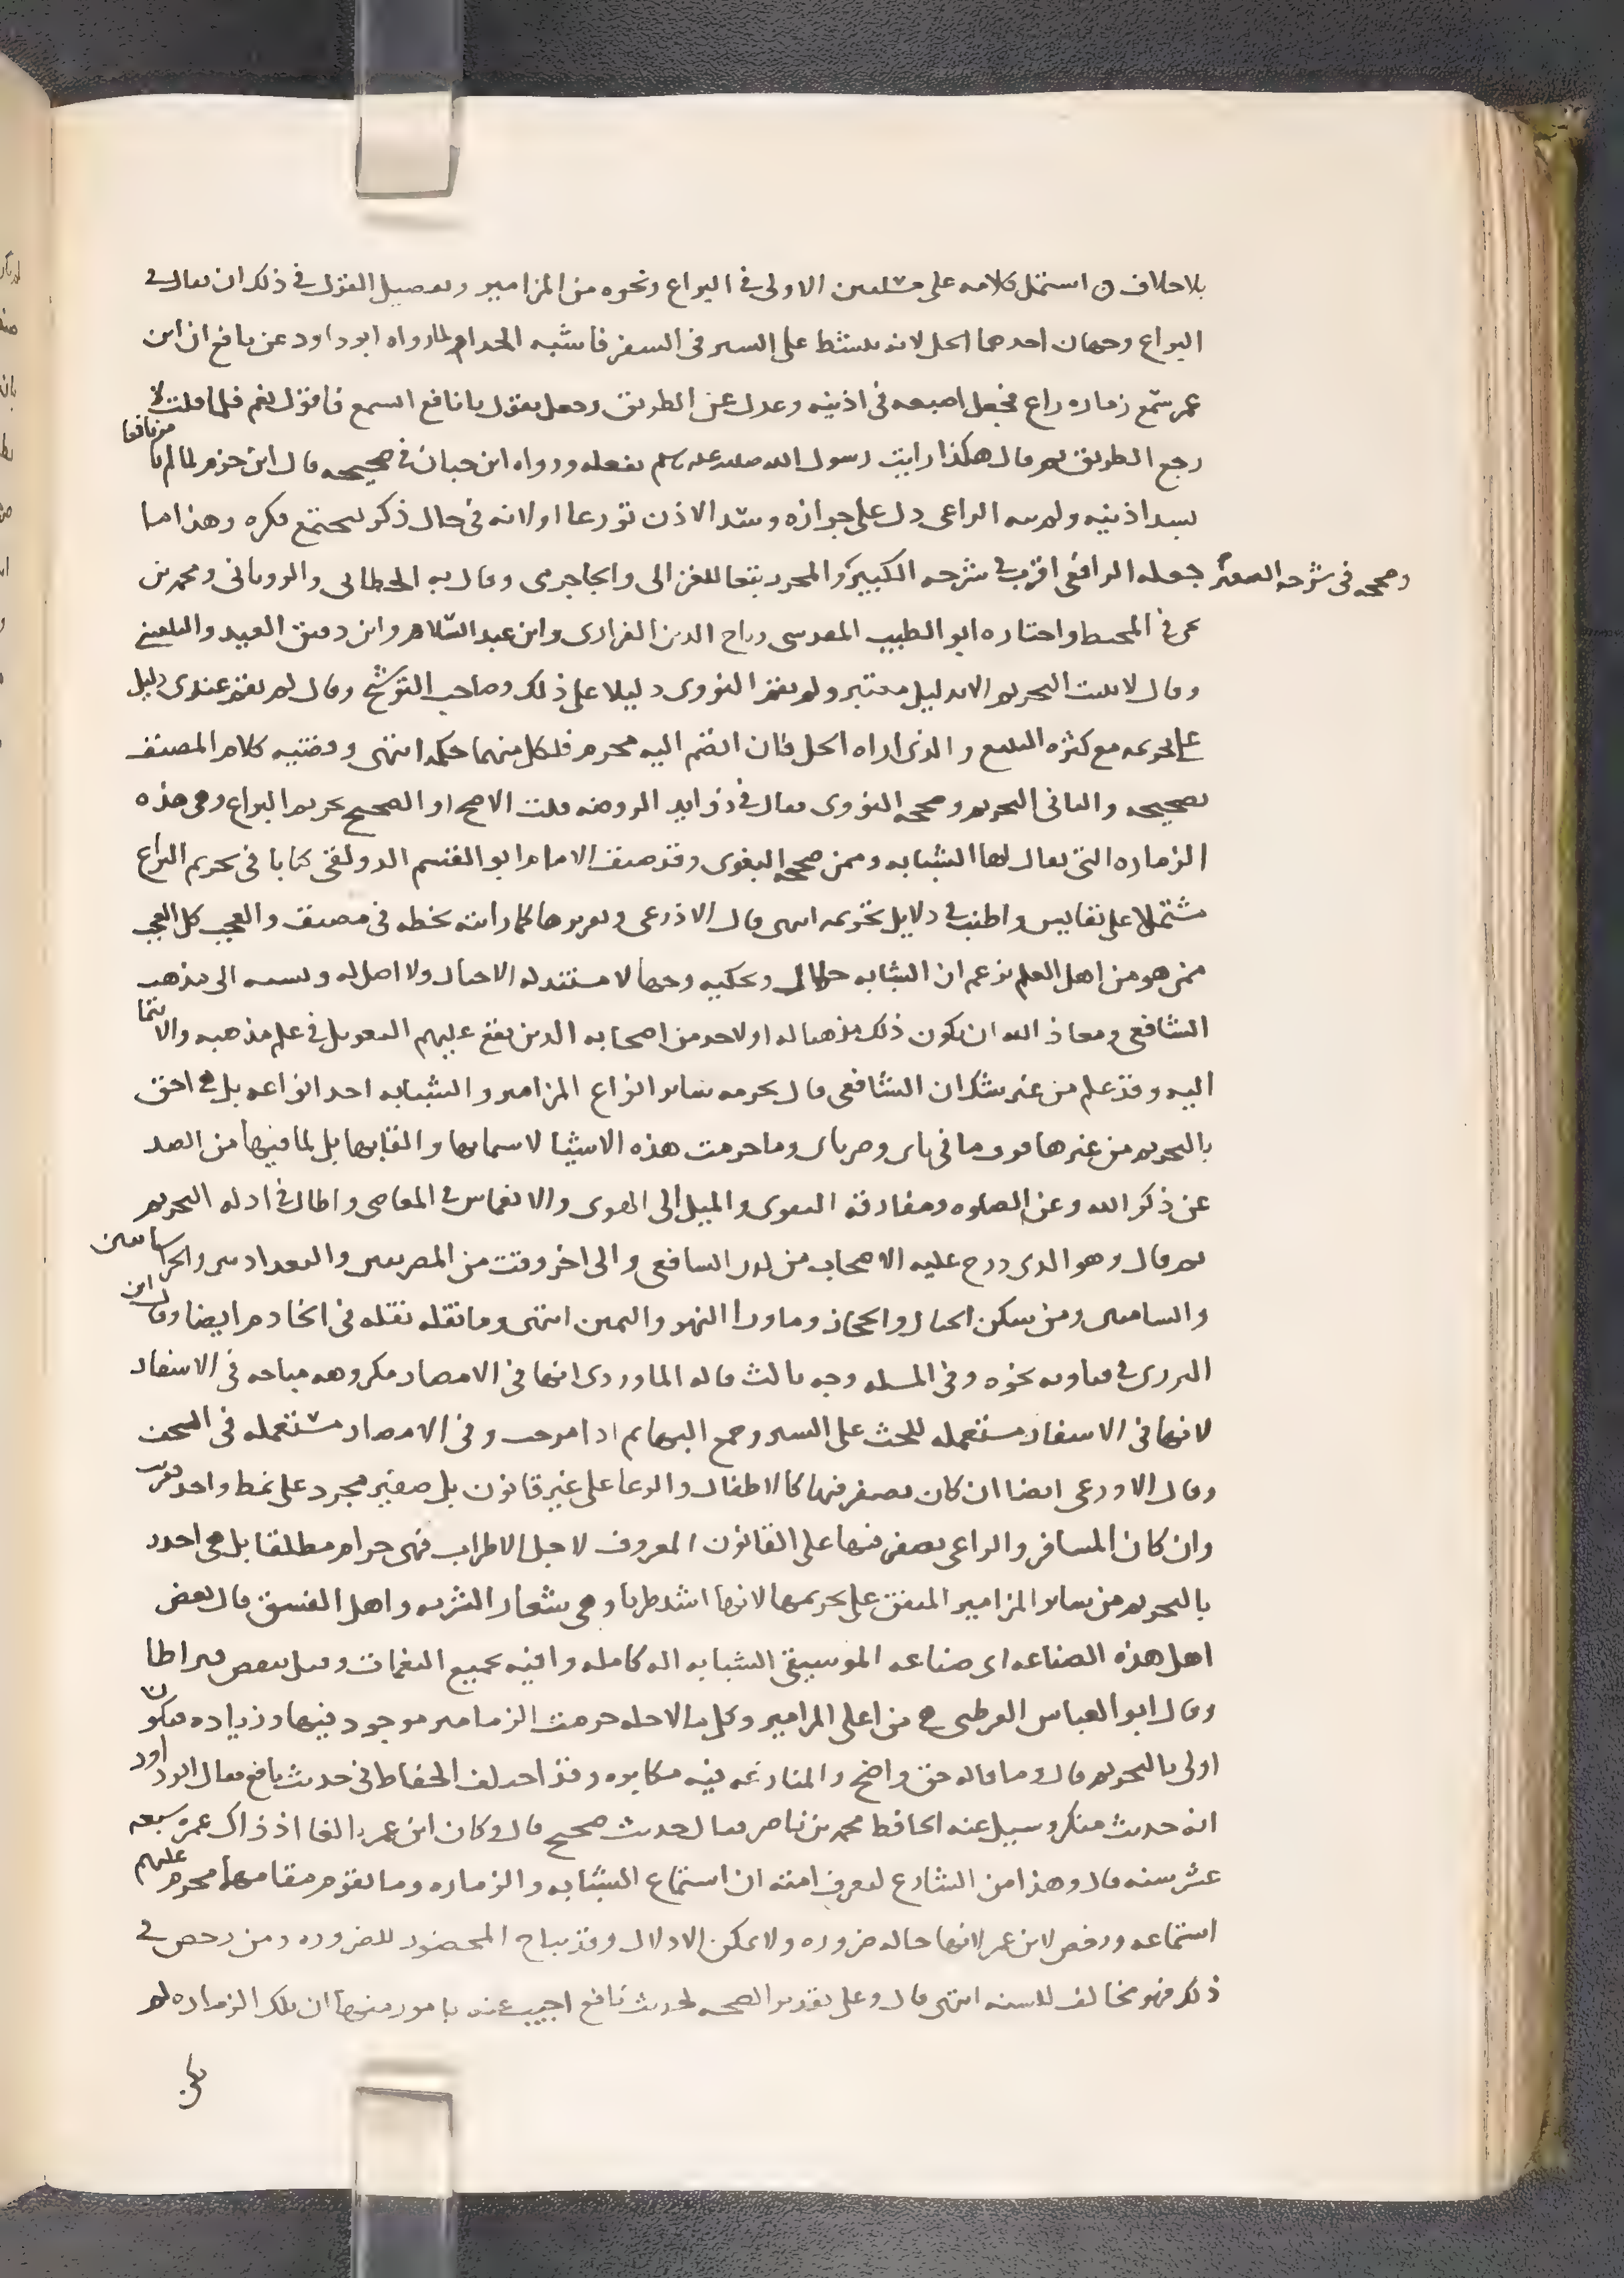 بلا خلاف ن اشتمل كلامه على مسئلتين الاولى في اليراع ونحوه من المزامير وتفصيل القول في ذلك ان يقال في
اليراع وجهان احدهما الحل لانه ينشط على السير في السفر فاشبه الحدا ولما رواه ابو داود عن نافع ان ابن
عمر سمع زماره راع فجعل اصبعه في اذنيه وعدل عن الطريق وجعل يقول يا نافع اتسمع فاقول نعم فلما قلت لا
رجع الطريق ثم قال هكذا رايت رسول الله صلى الله عليه وسلم يفعله ورواه ابن حبان في صحيحه قال ابن حزم لما لم يامر نافعا
بسد اذنيه ولم ينه الراعي دل على جوازه وسد الاذن تورعا او لانه في حال ذكر ليجتمع فكره وهذا ما
جعله الرافعي اقرب في شرحه الكبير والمحرر تبعا للغزالي والجاجرمي وقال به الخطابي والروياني ومحمد بن
وصححه في شرحه الصغير
يحيى في المحيط واختاره ابو الطيب المقدسي وتاج الدين الفزاري وابن عبد السلام وابن دقيق العيد والبلقيني
وقال لا يثبت التحريم الا بدليل معتبر ولم يقم النووي دليلا على ذلك وصاحب التوشيح وقال لم يقم عندي دليل
على تحريمه مع كثرة التتبع والذي اراه الحل فان انضم اليه محرم فلكل منهما حكمه انتهى وقضيه كلام المصنف
تصحيحه والثاني التحريم وصححه النووي فقال في زوايد الروضه قلت الاصح او الصحيح تحريم اليراع وهي هذه
الزماره التي يقال لها الشبابه وممن صححه البغوي وقد صنف الامام ابو القسم الدولعي كتابا في تحريم اليراع
مشتملا على نفايس واطنب في دلايل تحريمه انتهى قال الاذرعي وتقريرها كما رايته بخطه في مصنف والعجب كل العجب
ممن هو من اهل العلم يزعم ان الشبابه حلال ويحكيه وجها لا مستند له الا خيال ولا اصل له وينسبه الى مذهب
الشافعي ومعاذ الله ان يكون ذلك مذهبا له او لاحد من اصحابه الذين يقع عليهم التعويل في علم مذهبه والانتما
اليه وقد علم من غير شك ان الشافعي قال بحرمه ساير انواع المزامير والشبابه احد انواعه بل هي احق
بالتحريم من غيرها فوق ما في ناي وصرناي وما حرمت هذه الاشيا لاسمايها والقابها بل لما فيها من الصد
عن ذكر الله وعن الصلوه ومفارقه التقوى والميل الى الهوى والانغماس في المعاصي واطال في ادله التحريم
ثم قال وهو الذي درج عليه الاصحاب من لدن الشافعي والى اخر وقت من المصريين والبغداديين والخراسانيين
والشاميين ومن سكن الجبال والحجاز وما ورا النهر واليمن انتهى وما نقله نقله في الخادم ايضا وقال ابن
البزري في فتاويه نحوه وفي المسله وجه ثالث قاله الماوردي انها في الامصار مكروهه مباحه في الاسفار
لانها في الاسفار مستعمله للحث على السير وجمع البهايم اذا سرحت وفي الامصار مستعمله في السخف
وقال الاذرعي ايضا ان كان يصفر فيها كالاطفال والرعا على غير قانون بل صفير مجرد على نمط واحد فقريب
وان كان المسافر والراعي يصفر فيها على القانون المعروف لاجل الاطراب فهي حرام مطلقا بل هي اجدر
بالتحريم من ساير المزامير المتفق على تحريمها لانها اشد طربا وهي شعار الشربه واهل الفسق قال بعض
اهل هذه الصناعه اي صناعه الموسيقى الشبابه اله كامله وافيه بجميع النغمات وقيل ينقص قيراطا
وقال ابو العباس القرطبي هي من اعلى المزامير وكل ما لاجله حرمت المزامير موجود فيها وزياده فيكون
اولى بالتحريم قال وما قاله حق واضح والمنازعه فيه مكابره وقد اختلف الحفاظ في حديث نافع فقال ابو داود
انه حديث منكر وسيل عنه الحافظ محمد بن ناصر فقال حديث صحيح قال وكان ابن عمر بالغا اذ ذاك عمره سبعه
عشر سنه قال وهذا من الشارع ليعرف امته ان استماع الشبابه والزماره وما يقوم مقامها محرم عليهم
استماعه ورخص لابن عمر لانها حاله ضروره ولا يمكن الا ذلك وقد يباح المحضور للضروره ومن رخص في
ذلك فهو مخالف للسنه انتهى قال وعلى تقدير الصحه لحديث نافع اجيب عنه بامور منها ان تلك الزماره لم